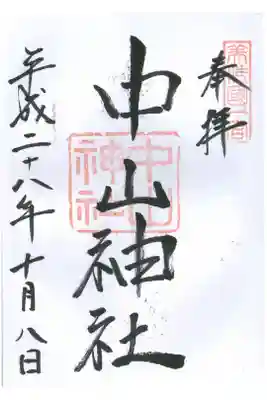 奉拝
中山神社
平成二十八年十月八日
中山
神社